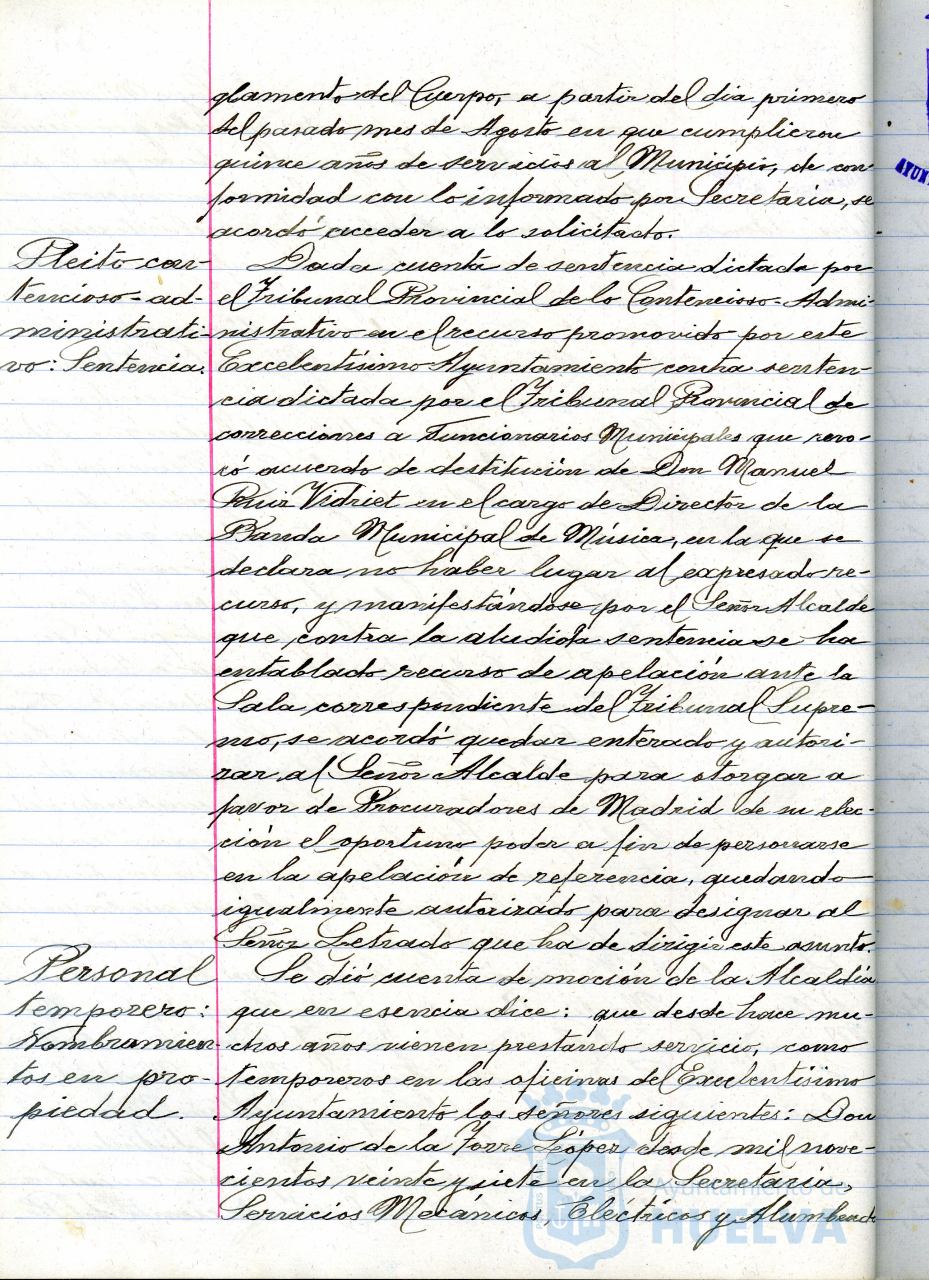 glamento del Cuerpo, a partir del dia primero
del pasado mes de Agosto en que cumplieron
quince años de servicios al Municipio, de con-
formidad con lo informado por Secretaría, se
acordó acceder a lo solicitado.
Pleito con-
tencioso-ad-
ministrati-
vo: Sentencia.
Dada cuenta de sentencia dictada por
el Tribunal Provincial de lo Contencioso-Admi-
nistrativo en el recurso promovido por este
Excelentísimo Ayuntamiento contra senten-
cia dictada por el Tribunal Provincial de
correcciones a Funcionarios Municipales que revo-
có acuerdo de destitución de Don Manuel
Ruiz Vidriet en el cargo de Director de la
Banda Municipal de Música, en la que se
declara no haber lugar al expresado re-
curso, y manifestándose por el Señor Alcalde
que contra la aludida sentencia se ha
entablado recurso de apelación ante la
Sala correspondiente del Tribunal Supre-
mo, se acordó quedar enterado y autori-
zar al Señor Alcalde para otorgar a
favor de Procuradores de Madrid de su elec-
ción el oportuno poder a fin de personarse
en la apelación de referencia, quedando
igualmente autorizado para designar al
Señor Letrado que ha de dirigir este asunto.
Personal
temporero:
Nombramien-
tos en pro-
piedad.
Se dió cuenta de moción de la Alcaldía
que en esencia dice: que desde hace mu-
chos años vienen prestando servicio, como
temporeros en las oficinas del Excelentísimo
Ayuntamiento los señores siguientes: Don
Antonio de la Torre López desde mil nove-
cientos veinte y siete en la Secretaría,
Servicios Mecánicos, Eléctricos y Alumbrado
Ayuntamiento de
HUELVA
AYUN